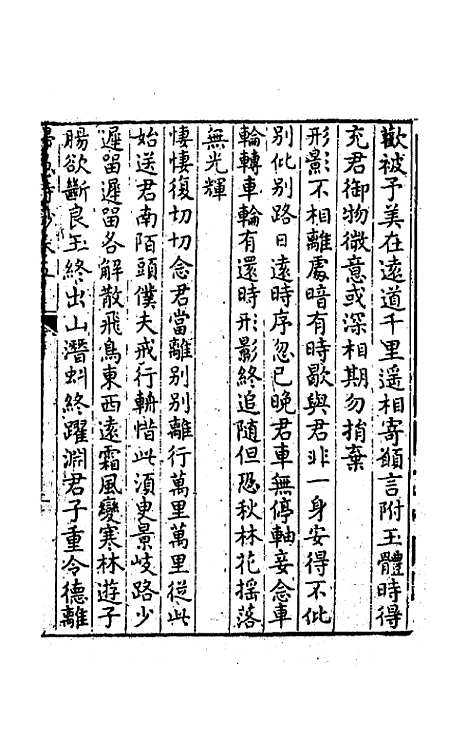 歡彼予美在遠道千里遥相寄願言附玉體時得
充君御物微意或深相期勿捐棄
形影不相離處暗有時歇與君非一身安得不仳
別仳別路日遠時序忽已晚君車無停軸妾念車
輪轉車輪有還時形影終追隨但恐秋林花揺落
無光輝
悽悽復切切念君當離别别離行萬里萬里從此
始送君南陌頭僕夫戒行輈惜此湏臾景岐路少
遲留遲留各解散飛鳥東西遠霜風變寒林遊子
腸欲斷良玉終出山潛虯終躍淵君子重令德離